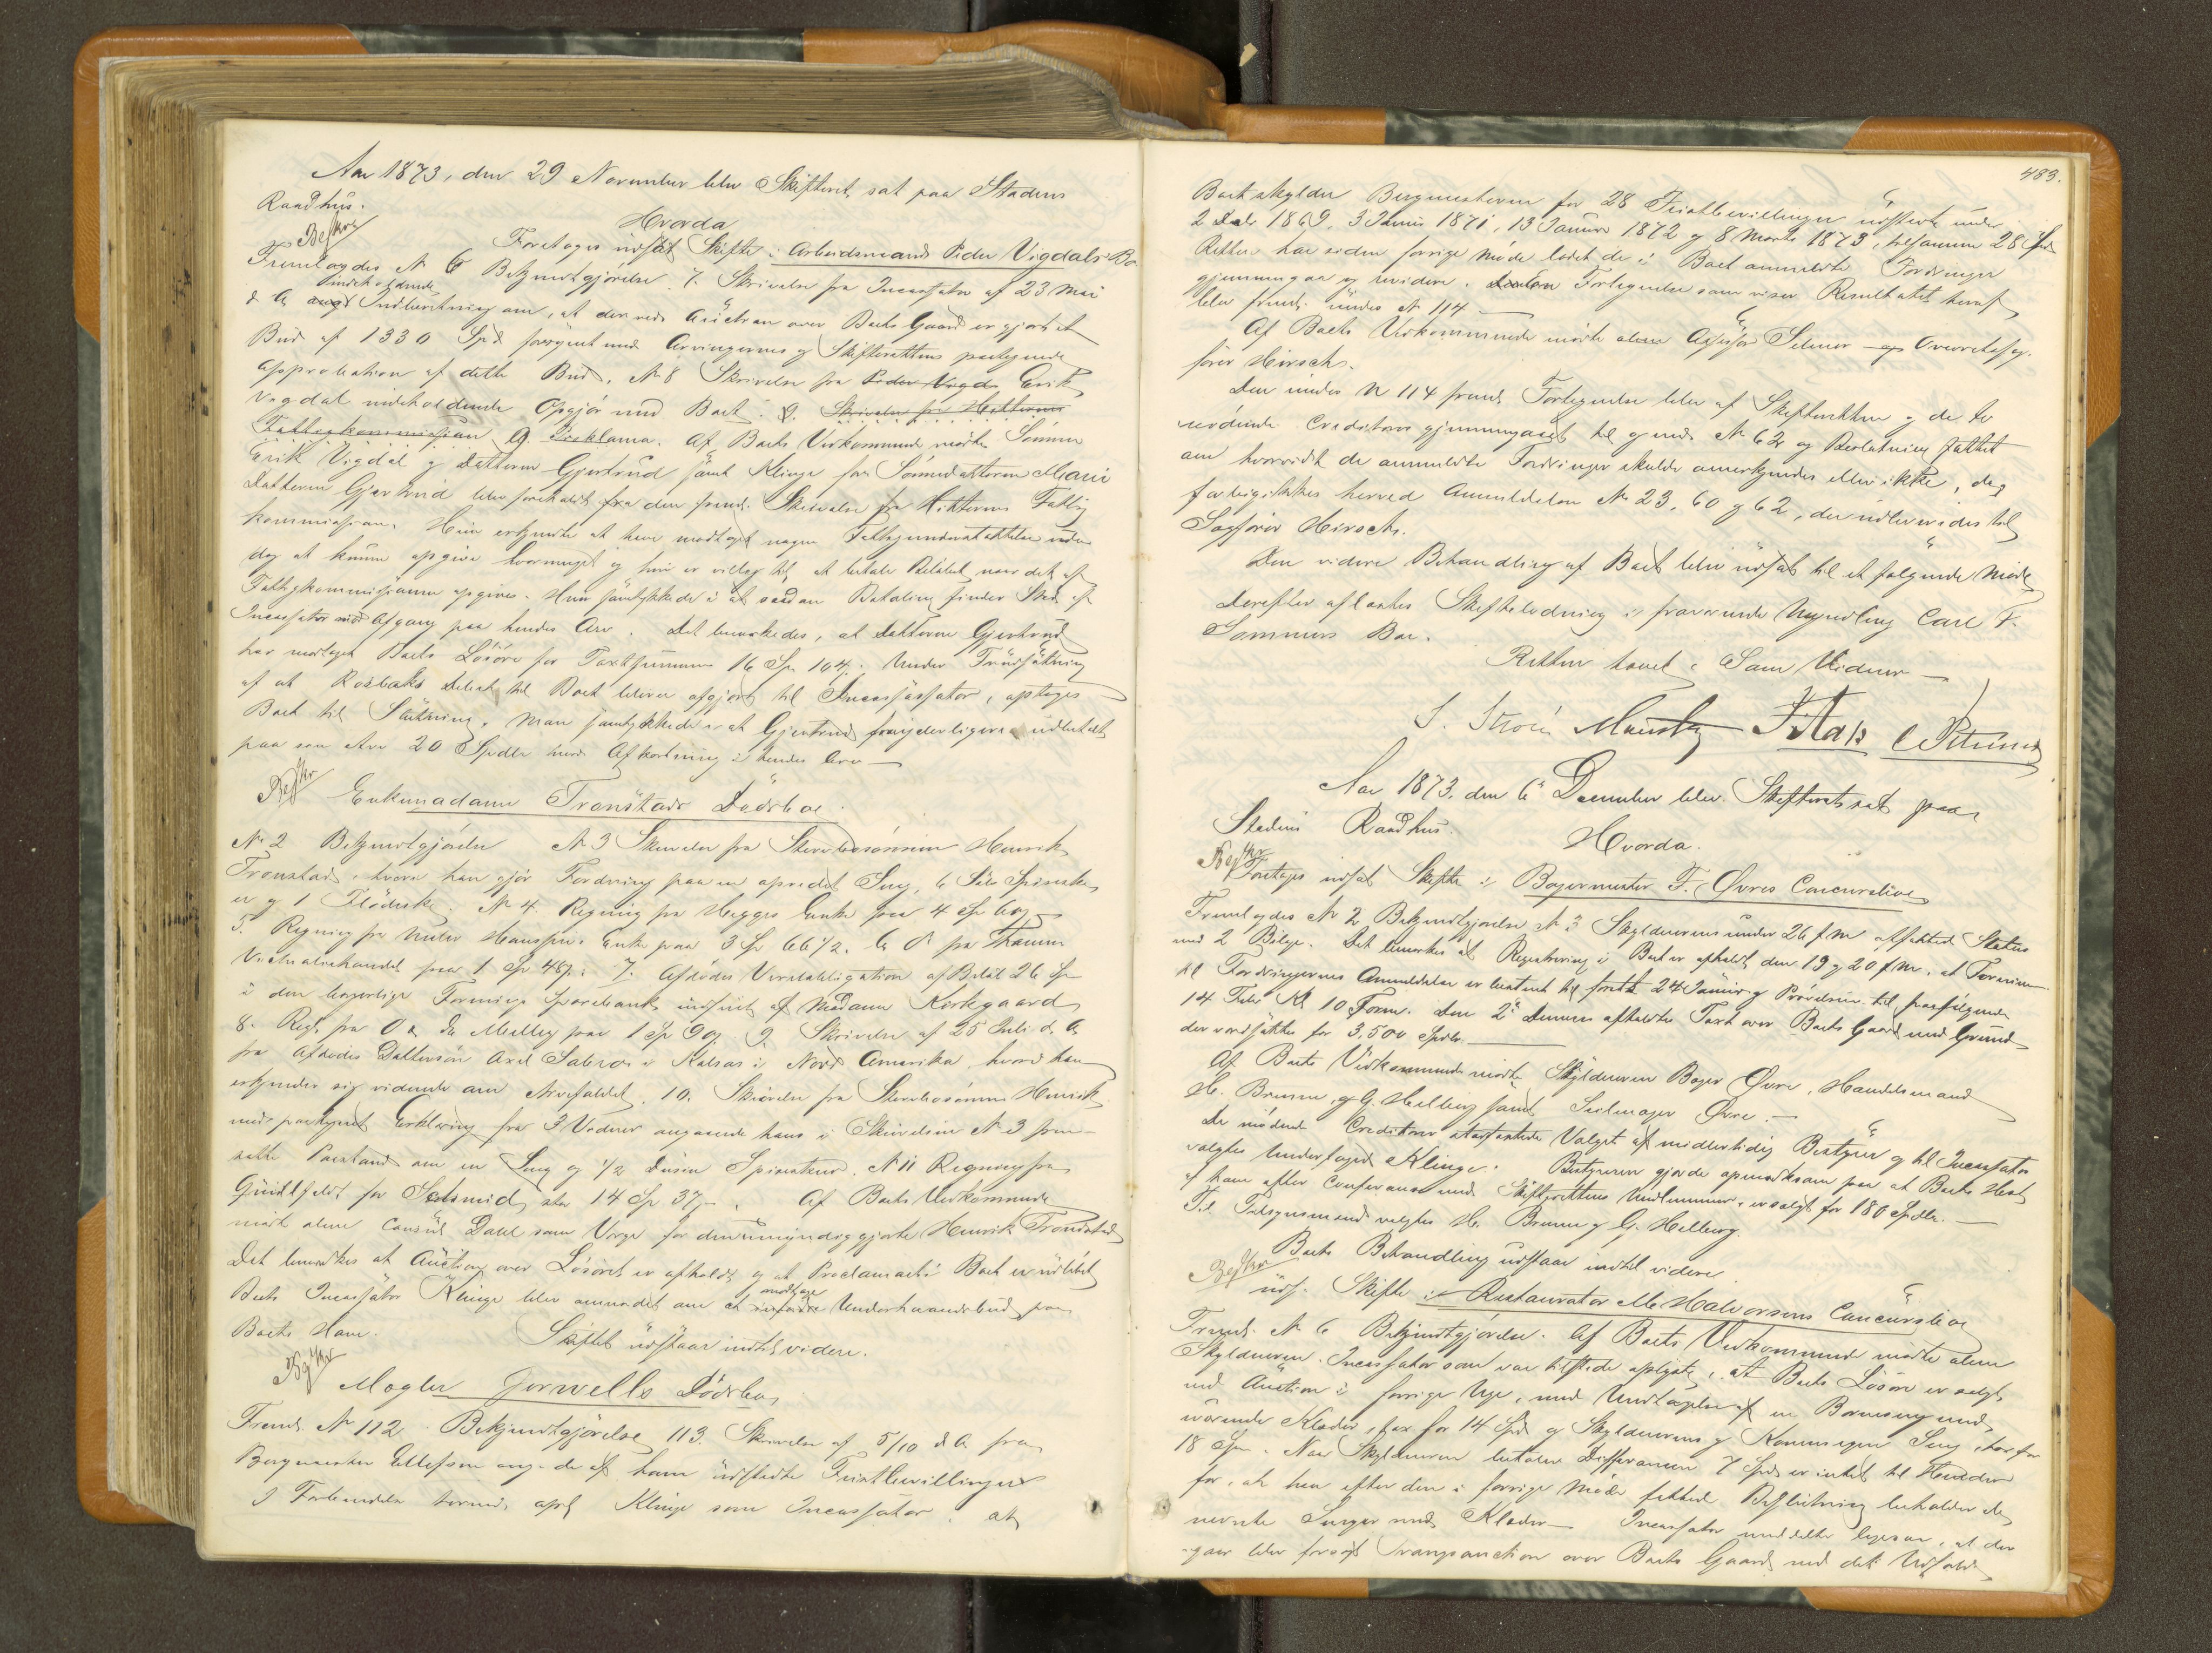 Aar 1873, den 29 November blev Skifteret sat paa Stadens
Raadhus.
Hvorda
Beskr
Foretages udsat Skifte i Arbeidsmand Peder Vigdals Bo
Fremlagdes No 6 Bekjendtgjörelse. 7. Skrivelse fra Incassator af 23 Mai
indeholdende
d A angd Indberetning om, at der ved Auction over Boets Gaard er gjort et
Bud af 1330 Spd forsynt med Arvingernes og Skifterettens paategnede
Approbation af dette Bud. No 8 Skrivelse fra Peder Vigda Erik
Vigdal indeholdende Opgjör med Boet. 9. Skrivelse fra Hitterens
Fattigkommission 9. Proklama. Af Boets Vedkommende mødte Sönnen
Erik Vigdal og Datteren Gjertrud samt Klinge for Sönnedatteren Marie
Datteren Gjertrud blev foreholdt fra den fremd. Skrivelse fra Hitterens Fattig
kommission. Hun erkjendte at have modtaget nogen Fattigunderstøttelse uden
dog at kunne opgive hvormeget og hun er villig til at betale Beløbet naar det af
Fattigkommissionen opgives. Hun samtykkede i at saadan Betaling finder Sted af
Incassator mod Afgang paa hendes Arv. Det bemærkedes, at Datteren Gjertrud
har modtaget Boets Lösöre for Taxtsummen 16 Sp 104 s. Under Forudsætning
af at Rosbaks Debet til Boet bliver afgjort til Incassator, optages
Boet til Slutning. Man samtykkede i at Gjertrud foreløbigen udbetalt
paa sin Arv 20 Spdlr mod Afkortning i hendes Arv —
Beskr Enkemadame Tronstads Dödsbo.
No 2 Bekjendtgjörelse No 3 Skrivelse fra Stervbosönnen Henrik
Tronstad, hvori han gjör Fordring paa en opredet Seng, 6 Sølv Spiseske
er og 1 Flödeske. No 4. Regning fra Heggs Enke paa 4 Sp 60 s
5. Regning fra Hansens Enke paa 3 Sp 66 1/2. 6 do fra Thams
Victualiehandel paa 1 Sp 48 s. 7. Afdödes Vexelobligation af Beløb 26 Sp
i den borgerlige Forenings Sparebank indfriet af Madame Kirkgaard
8. Regn. fra O. A. Da Melby paa 1 Sp 90 s 9. Skrivelse af 25 Juli d. A.
fra Afdödes Dattersön Axel Salvesen i Kansas i Nord Amerika, hvori han
erkjender sig vidende om Arvefaldet. 10. Skrivelse fra Stervbosönnen Henrik
med paategnet Erklæring fra 3 Vidner angaaende hans i Skrivelsen No 3 frem-
satte Paastand om en Seng og 1/2 Dusin Spiseskeer. No 11 Regning fra
Guldfeldt for Sølvsmid, stor 14 Sp 37 s. Af Boets Vedkommende
mødte alene Consul Dahl som Verge for den umyndiggjorte Henrik Tronstad
Det bemærkes at Auction over Lösöret er afholdt og at Proclama i Boet er udlöbet
modtage
Boets Incassator Klinge blev anmodet om at indfordre Underhaandsbud paa
Boets Have. Skiftet udstaar indtil videre.
Beskr
Mægler Jorwells Dödsbo
Fremd. No 112 Bekjendtgjörelse 113. Skrivelse af 5/10 d A fra
Bergmester Ellefsen ang. de af ham udstedte Fristbevillinger
I Forbindelse hermed opl. Klinge som Incassator, at
483.
Boet skylder Bergmesteren for 28 Fristbevillinger udstedte under
2 1869, 3 Junii 1871, 13 Januar 1872 og 8 Marts 1873, tilsammen 28 Spd
Retten har siden forrige Møde ladet de i Boet anmeldte Fordringer
gjennemgaa og revidere. Fortegnelse som viser Resultatet heraf
blev fremd. under No 114 —
Af Boets Vedkommende mødte alene Assessor Selmer og Overretssag-
förer Hirsch.
Den under No 114 fremd. Fortegnelse blev af Skifteretten og de to
mødende Creditorer gjennemgaaet til og med No 62 og Beslutning fattet
om hvorvidt de anmeldte Fordringer skulde anerkjendes eller ikke, dog
forbigikkes herved Anmeldelserne No 23, 60 og 62, der udleveredes til
Sagförer Hirsch.
Den videre Behandling af Boet blev udsat til et fölgende Møde
Derefter aflastes Skifteslutning i fraværende Myndling Carl F.
Sommers Bo.
Retten hævet. Som Vidner —
S. Ström Mansky C Petersen
Aar 1873, den 6te December blev Skifteret sat paa
Stadens Raadhus.
Hvorda.
Beskr
Foretages udsat Skifte i Bagermester F. Øvres Concursbo
Fremlagdes No 2 Bekjendtgjörelse, No 3 Skyldnerens under 26 f. M. affattede Status
med 2 Bilage. Det bemærkes at Registrering i Boet er afholdt den 19 og 20 f. M., at Terminen
til Fordringernes Anmeldelse er berammet til førstk. 24 Januar og Prøvelsen til paafölgende
14 Febr Kl 10 Form. Den 2den Dennes afholdtes Taxt over Boets Gaard med Grund
der værdsattes for 3,500 Spdlr. —
Af Boets Vedkommende mødte Skyldneren Bager Øvre, Handelsmand
H. Bruun, og G. Helberg samt Seilmager Øvre. —
De mødende Creditorer stadfæstede Valget af midlertidig Bestyrer og til Incassator
valgtes Underfoged Klinge. Bestyreren gjorde opmærksom paa at Boets Hest
af ham efter Conferance med Skifterettens Medlemmer, er solgt for 180 Spdlr. —
Til Tilsynsmænd valgtes H. Bruun og G. Helberg.
Boets Behandling udstaar indtil videre.
Beskr
uds. Skifte i Restaurator M. Halvorsens Concursbo
Fremd. No 6 Bekjendtgjörelse. Af Boets Vedkommende mødte alene
Skyldneren. Incassator som var tilstede oplyste, at Boets Lösöre er solgt
ved Auction i forrige Uge, med Undtagelse af en Barneseng med
værende Klæder, tax for 14 Spd og Skyldnerens og Kones egen Seng, tax for
18 Spd. Naar Skyldneren betaler Differancen 7 Spd er intet til Hinder
for, at han efter den i forrige Møde fattede Beslutning beholder de
nævnte Senge med Klæder — Incassator meddelte ligesaa, at der
igaar blev foresagt Tvangsauction over Boets Gaard med det Udfald